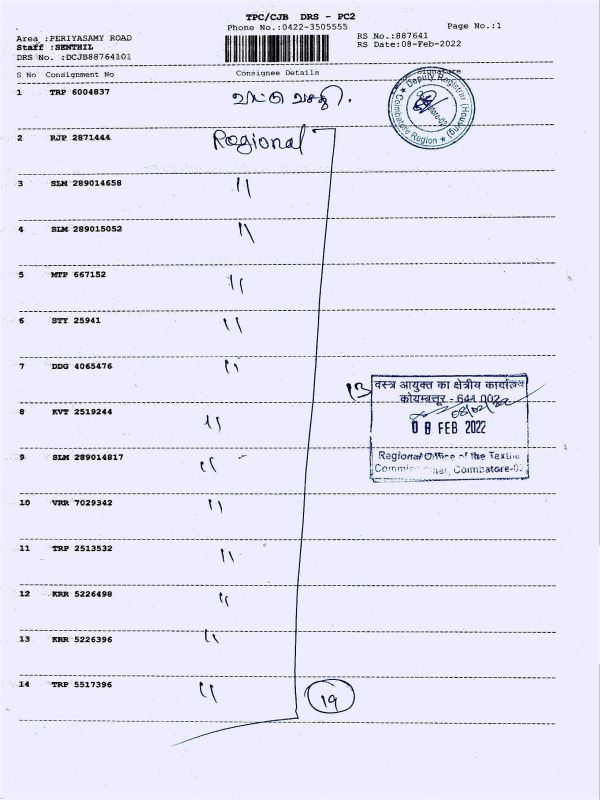 TPC/CJB DRS - PC2
Phone No.:0422-3505555
Page No.:1
Area :PERIYASAMY ROAD
RS No.:887641
Staff :SENTHIL
RS Date:08-Feb-2022
DRS No. :DCJB88764101
S No Consignment No Consignee Details Signature
1 TRP 6004837 வீட்டு வசதி.
Deputy Registrar (Housing)
Coimbatore Region
2 RJP 2871444 Regional
3 SLM 289014658 "
4 SLM 289015052 "
5 MTP 667152 "
6 STY 25941 "
7 DDG 4065476 "
13
वस्त्र आयुक्त का क्षेत्रीय कार्यालय
कोयम्बत्तूर - 641 002
08/02/22
08 FEB 2022
Regional Office of the Textile
Coimbatore-02
8 KVT 2519244 "
9 SLM 289014817 "
10 VRR 7029342 "
11 TRP 2513532 "
12 KRR 5226498 "
13 KRR 5226396 "
14 TRP 5517396 "
19